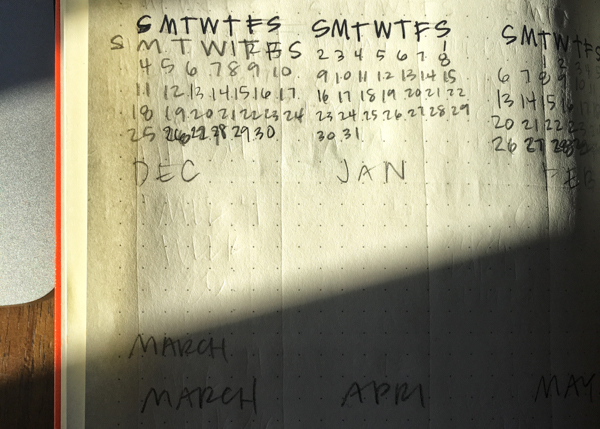 S M T W T F S
S M T W T F S
4 5 6 7 8 9 10
11 12 13 14 15 16 17
18 19 20 21 22 23 24
25 26 27 28 29 30
DEC
S M T W T F S
1
2 3 4 5 6 7 8
9 10 11 12 13 14 15
16 17 18 19 20 21 22
23 24 25 26 27 28 29
30 31
JAN
S M T W T F S
6 7 8 9 10
13 14 15 16
20 21 22 23
26 27 28
FEB
MARCH
MARCH
APRI
MAY